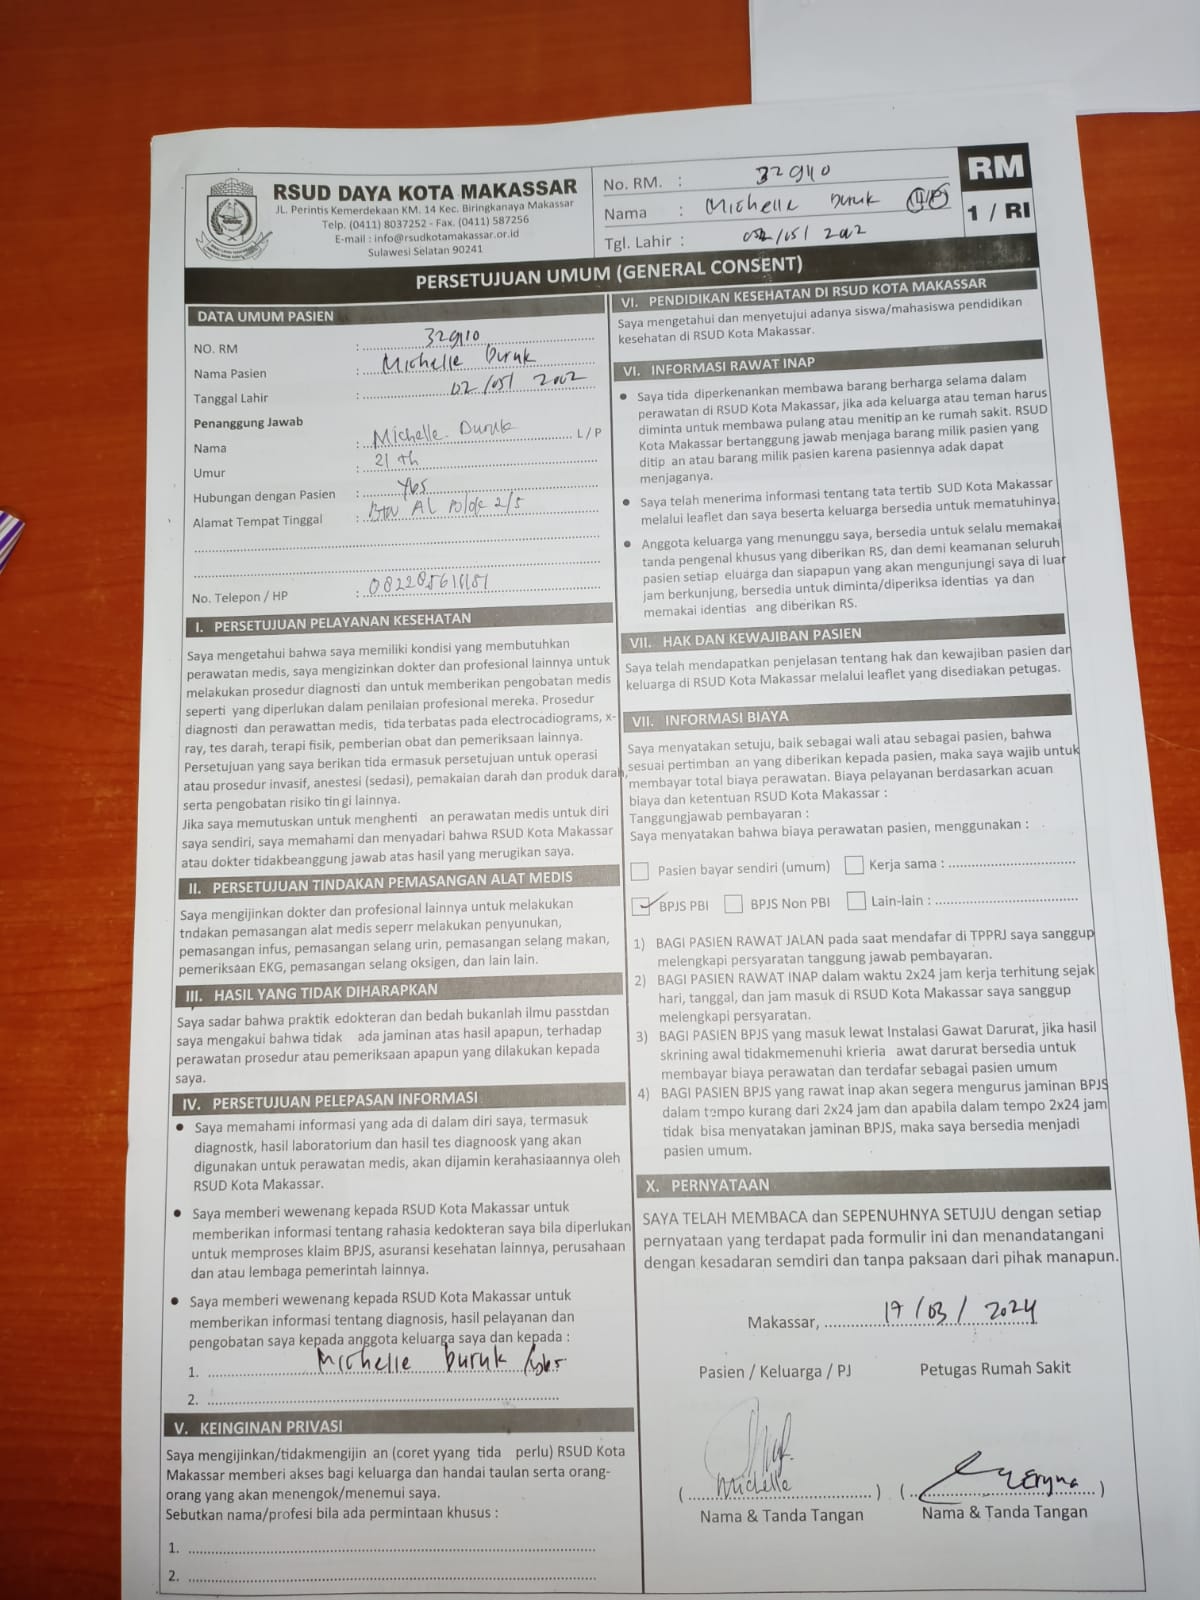 RSUD DAYA KOTA MAKASSAR
JL. Perintis Kemerdekaan KM. 14 Kec. Biringkanaya Makassar
Telp. (0411) 8037252 - Fax. (0411) 587256
E-mail : info@rsudkotamakassar.or.id
Sulawesi Selatan 90241
No. RM. : 329110
Nama : Michelle Duruk (L/P)
Tgl. Lahir : 02/05/2002
RM
1 / RI
PERSETUJUAN UMUM (GENERAL CONSENT)
DATA UMUM PASIEN
NO. RM : 329110
Nama Pasien : Michelle Duruk
Tanggal Lahir : 02/05/2002
Penanggung Jawab
Nama : Michelle Duruk L / P
Umur : 21 th
Hubungan dengan Pasien : Ybs
Alamat Tempat Tinggal : BTN AL 2/5
No. Telepon / HP :
I. PERSETUJUAN PELAYANAN KESEHATAN
Saya mengetahui bahwa saya memiliki kondisi yang membutuhkan
perawatan medis, saya mengizinkan dokter dan profesional lainnya untuk
melakukan prosedur diagnosti dan untuk memberikan pengobatan medis
seperti yang diperlukan dalam penilaian profesional mereka. Prosedur
diagnosti dan perawattan medis, tida terbatas pada electrocadiograms, x-
ray, tes darah, terapi fisik, pemberian obat dan pemeriksaan lainnya.
Persetujuan yang saya berikan tida ermasuk persetujuan untuk operasi
atau prosedur invasif, anestesi (sedasi), pemakaian darah dan produk darah,
serta pengobatan risiko tin gi lainnya.
Jika saya memutuskan untuk menghenti an perawatan medis untuk diri
saya sendiri, saya memahami dan menyadari bahwa RSUD Kota Makassar
atau dokter tidakbeanggung jawab atas hasil yang merugikan saya.
II. PERSETUJUAN TINDAKAN PEMASANGAN ALAT MEDIS
Saya mengijinkan dokter dan profesional lainnya untuk melakukan
tndakan pemasangan alat medis seperr melakukan penyunukan,
pemasangan infus, pemasangan selang urin, pemasangan selang makan,
pemeriksaan EKG, pemasangan selang oksigen, dan lain lain.
III. HASIL YANG TIDAK DIHARAPKAN
Saya sadar bahwa praktik edokteran dan bedah bukanlah ilmu passtdan
saya mengakui bahwa tidak ada jaminan atas hasil apapun, terhadap
perawatan prosedur atau pemeriksaan apapun yang dilakukan kepada
saya.
IV. PERSETUJUAN PELEPASAN INFORMASI
• Saya memahami informasi yang ada di dalam diri saya, termasuk
diagnostk, hasil laboratorium dan hasil tes diagnoosk yang akan
digunakan untuk perawatan medis, akan dijamin kerahasiaannya oleh
RSUD Kota Makassar.
• Saya memberi wewenang kepada RSUD Kota Makassar untuk
memberikan informasi tentang rahasia kedokteran saya bila diperlukan
untuk memproses klaim BPJS, asuransi kesehatan lainnya, perusahaan
dan atau lembaga pemerintah lainnya.
• Saya memberi wewenang kepada RSUD Kota Makassar untuk
memberikan informasi tentang diagnosis, hasil pelayanan dan
pengobatan saya kepada anggota keluarga saya dan kepada :
1. Michelle Duruk /ybs.
2.
V. KEINGINAN PRIVASI
Saya mengijinkan/tidakmengijin an (coret yyang tida perlu) RSUD Kota
Makassar memberi akses bagi keluarga dan handai taulan serta orang-
orang yang akan menengok/menemui saya.
Sebutkan nama/profesi bila ada permintaan khusus :
1.
2.
VI. PENDIDIKAN KESEHATAN DI RSUD KOTA MAKASSAR
Saya mengetahui dan menyetujui adanya siswa/mahasiswa pendidikan
kesehatan di RSUD Kota Makassar.
VI. INFORMASI RAWAT INAP
• Saya tida diperkenankan membawa barang berharga selama dalam
perawatan di RSUD Kota Makassar, jika ada keluarga atau teman harus
diminta untuk membawa pulang atau menitip an ke rumah sakit. RSUD
Kota Makassar bertanggung jawab menjaga barang milik pasien yang
ditip an atau barang milik pasien karena pasiennya adak dapat
menjaganya.
• Saya telah menerima informasi tentang tata tertib SUD Kota Makassar
melalui leaflet dan saya beserta keluarga bersedia untuk mematuhinya.
• Anggota keluarga yang menunggu saya, bersedia untuk selalu memakai
tanda pengenal khusus yang diberikan RS, dan demi keamanan seluruh
pasien setiap eluarga dan siapapun yang akan mengunjungi saya di luar
jam berkunjung, bersedia untuk diminta/diperiksa identias ya dan
memakai identias ang diberikan RS.
VII. HAK DAN KEWAJIBAN PASIEN
Saya telah mendapatkan penjelasan tentang hak dan kewajiban pasien dan
keluarga di RSUD Kota Makassar melalui leaflet yang disediakan petugas.
VII. INFORMASI BIAYA
Saya menyatakan setuju, baik sebagai wali atau sebagai pasien, bahwa
sesuai pertimban an yang diberikan kepada pasien, maka saya wajib untuk
membayar total biaya perawatan. Biaya pelayanan berdasarkan acuan
biaya dan ketentuan RSUD Kota Makassar :
Tanggungjawab pembayaran :
Saya menyatakan bahwa biaya perawatan pasien, menggunakan :
Pasien bayar sendiri (umum) Kerja sama :
BPJS PBI BPJS Non PBI Lain-lain :
1) BAGI PASIEN RAWAT JALAN pada saat mendafar di TPPRJ saya sanggup
melengkapi persyaratan tanggung jawab pembayaran.
2) BAGI PASIEN RAWAT INAP dalam waktu 2x24 jam kerja terhitung sejak
hari, tanggal, dan jam masuk di RSUD Kota Makassar saya sanggup
melengkapi persyaratan.
3) BAGI PASIEN BPJS yang masuk lewat Instalasi Gawat Darurat, jika hasil
skrining awal tidakmemenuhi krieria awat darurat bersedia untuk
membayar biaya perawatan dan terdafar sebagai pasien umum
4) BAGI PASIEN BPJS yang rawat inap akan segera mengurus jaminan BPJS
dalam tempo kurang dari 2x24 jam dan apabila dalam tempo 2x24 jam
tidak bisa menyatakan jaminan BPJS, maka saya bersedia menjadi
pasien umum.
X. PERNYATAAN
SAYA TELAH MEMBACA dan SEPENUHNYA SETUJU dengan setiap
pernyataan yang terdapat pada formulir ini dan menandatangani
dengan kesadaran semdiri dan tanpa paksaan dari pihak manapun.
Makassar, 17/03/2024
Pasien / Keluarga / PJ Petugas Rumah Sakit
(Michelle) ( )
Nama & Tanda Tangan Nama & Tanda Tangan